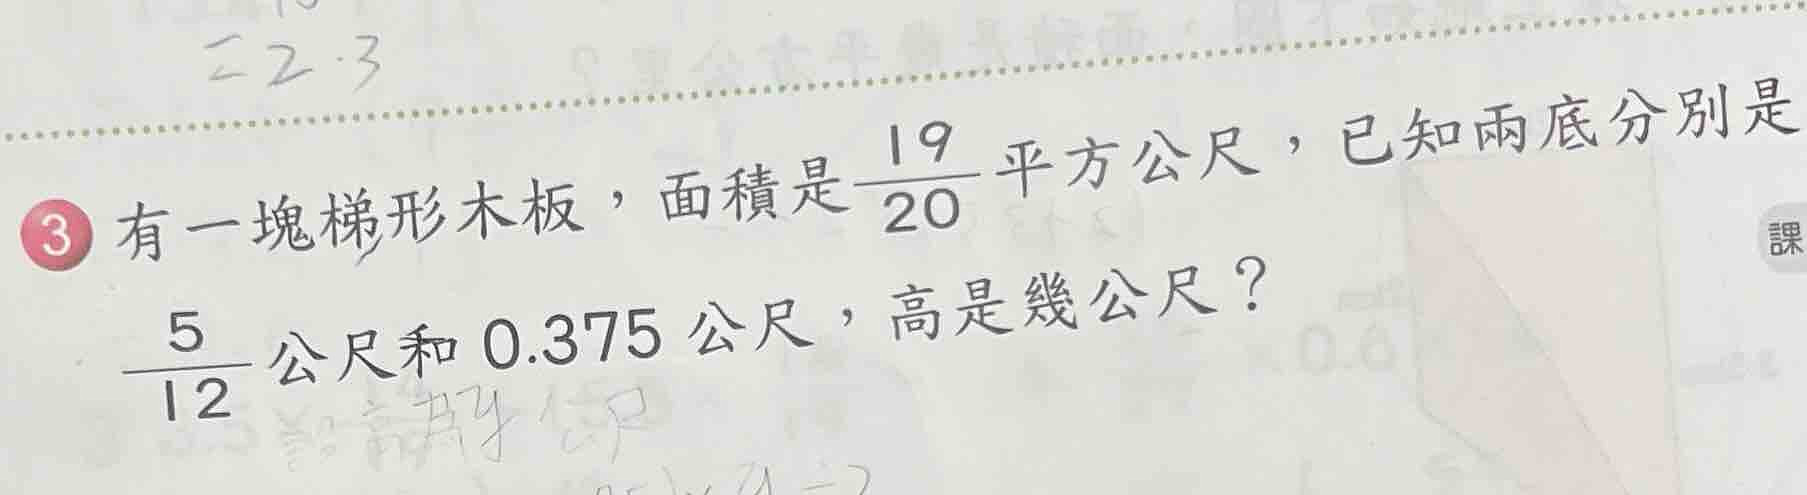 =2.3
3 有一塊梯形木板，面積是19/20平方公尺，已知兩底分別是
課
5/12公尺和0.375公尺，高是幾公尺？